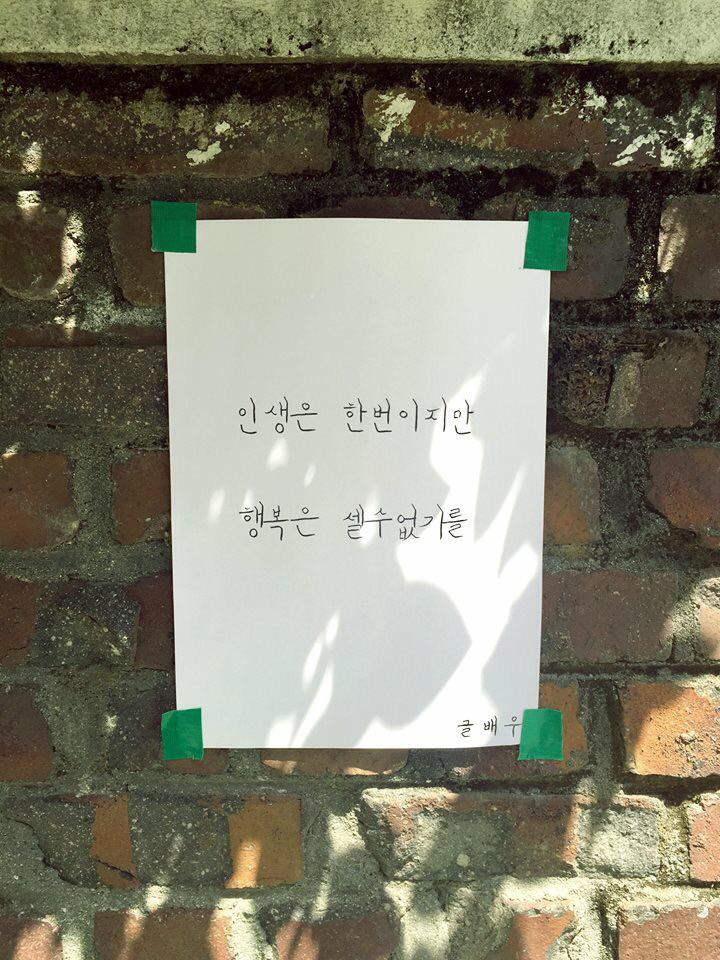 인생은 한번이지만
행복은 셀수없기를
글배우